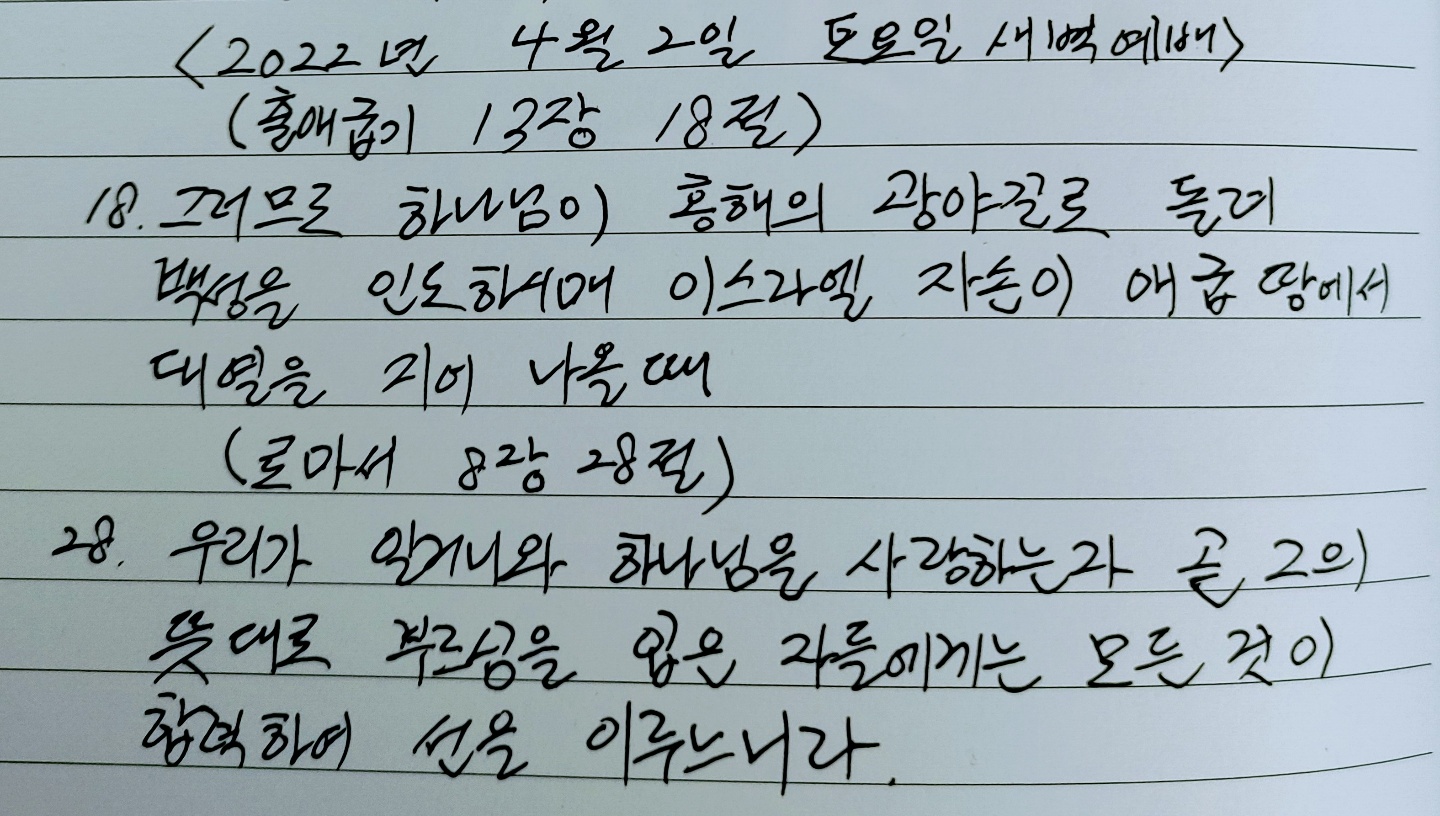 <2022년 4월 2일 토요일 새벽예배>
(출애굽기 13장 18절)
18. 그러므로 하나님이 홍해의 광야길로 돌려
백성을 인도하시매 이스라엘 자손이 애굽 땅에서
대열을 지어 나올때
(로마서 8장 28절)
28. 우리가 알거니와 하나님을 사랑하는자 곧 그의
뜻대로 부르심을 입은 자들에게는 모든 것이
합력하여 선을 이루느니라.